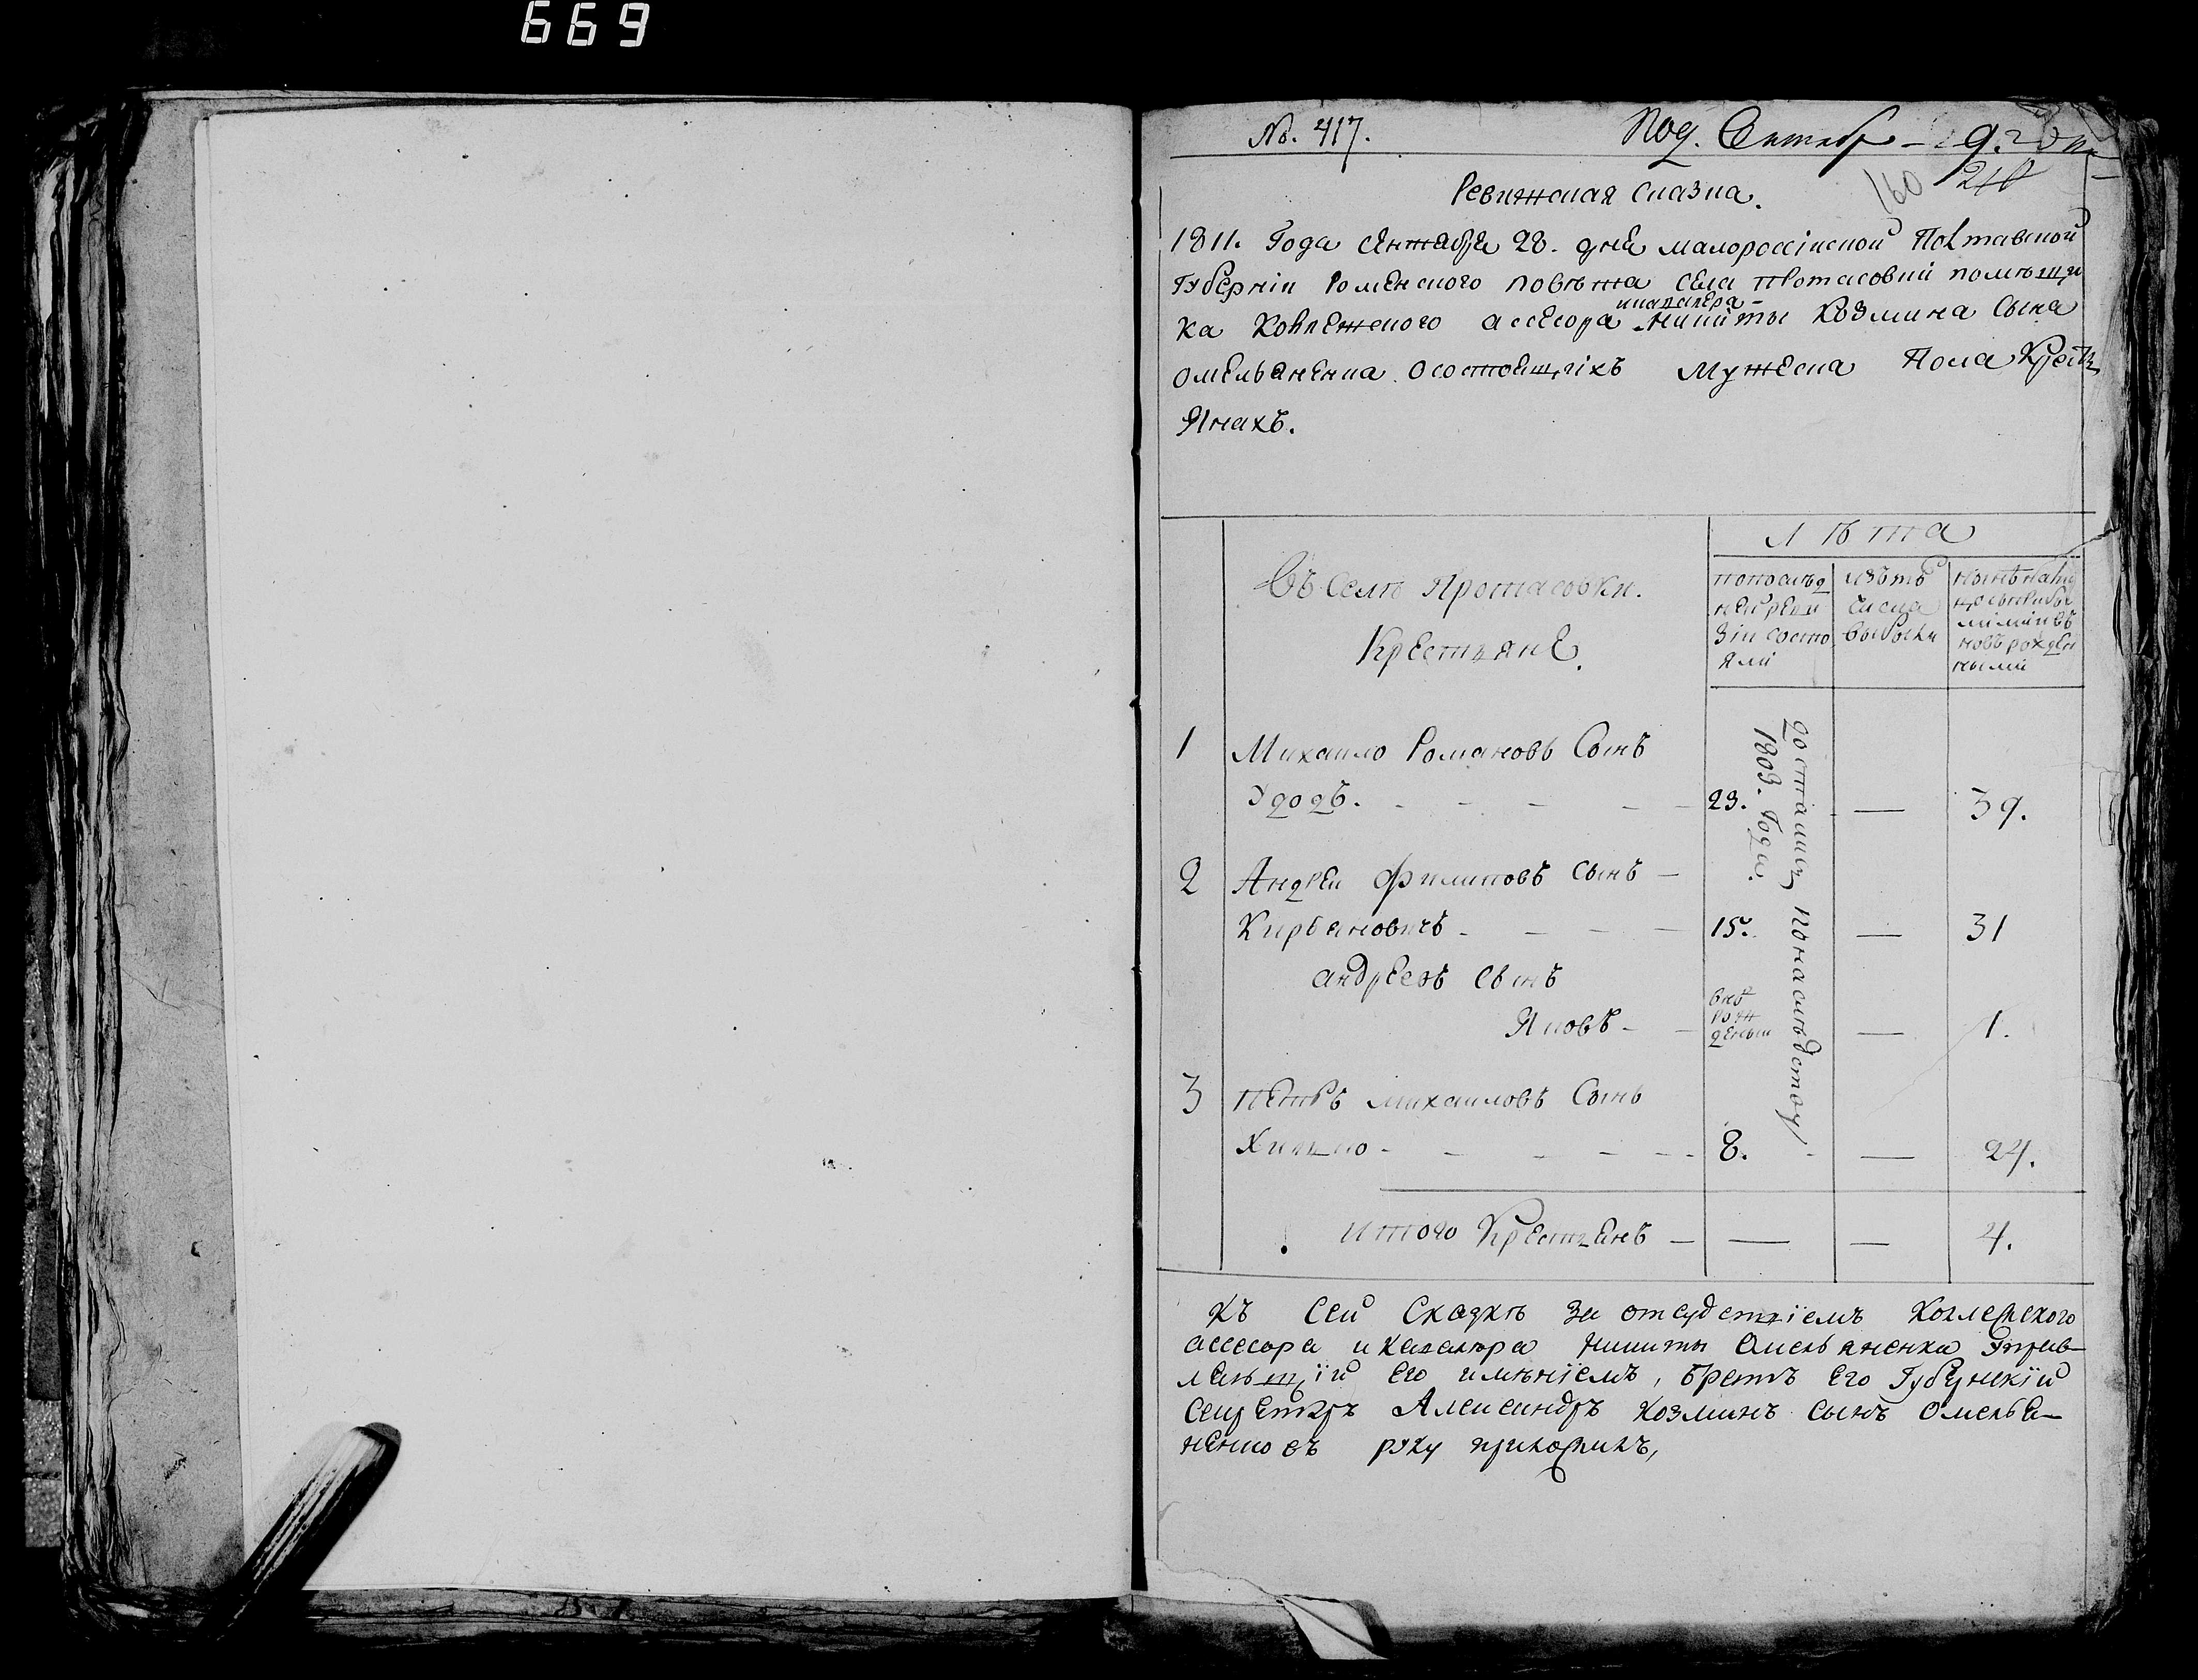 669
№. 417.
Под. Октябр — 9.го дня
160 210
Ревижская сказка.
1811. Года сентября 28. дня малороссийской Полтавской
Губерніи Роменского повѣта села протасовки помѣщи
ка Коллежского ассесора икавалера Никиты Козмина сына
омельяненка осостоящихъ мужеска Пола Крестъ
янахъ.
Лѣта
Въ Селѣ Протасовки.
Крестьяне.
попослѣд
ней реви
зіи состо
яли
изъ того
числа
выбыли
нынѣ на
новъ рожден
ными
1 Михаило Романовъ Сынъ
Удодъ. - - - - - 23. — 39.
досталис понаслѣдству
1803. Года.
2 Андреи Филиповъ сынъ —
Кирьяновичъ - - - - 15. — 31
андреевъ сынъ
Яковъ - - внов рож деныи — 1.
3 Петръ михаиловъ Сынъ
Хилько - - - - - 8. — 24.
итого Крестьянъ — — — 4.
Къ сей Сказкѣ за отсудствіемъ Коллежского
ассесора и кавалера Никиты Омельяненка Управ-
ляющій его имѣніемъ, братъ его Губернскій
Секретарь Александръ Козминъ сынъ Омелья-
ненковъ руку приложилъ,